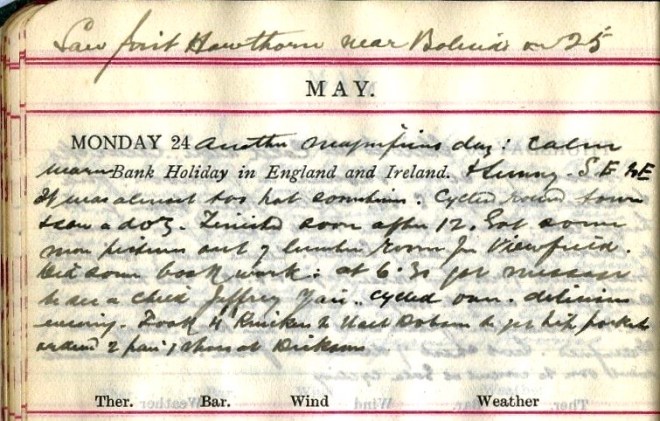 Saw first Hawthorn near on 25
MAY.
MONDAY 24 Another day: Calm
warm Bank Holiday in England and Ireland. & Sunny. S.E
It was almost too hot sometimes. Cycled round town
& saw a doz. Finished soon after 12. Got some
more pictures out of lumber room for Viewfield.
Did some book work: at 6.30 got message
to see a child Jeffrey cycled over. delicious
evening. Took to to get hip pocket
2 pair shoes at
Ther. Bar. Wind Weather